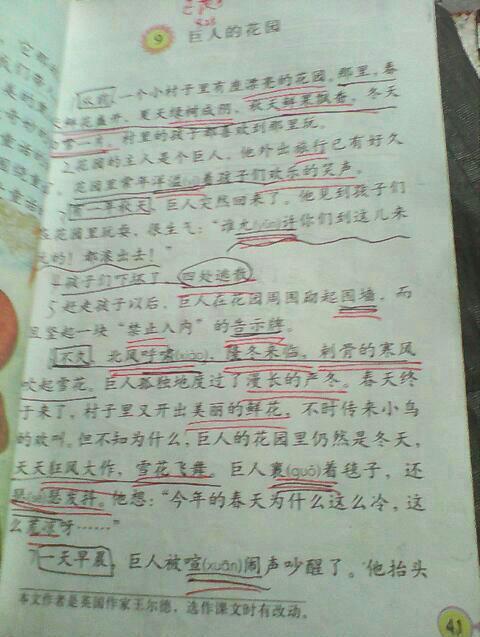 9 巨人的花园
从前,一个小村子里有座漂亮的花园。那里,春
天鲜花盛开,夏天绿树成阴,秋天鲜果飘香,冬天
白雪一片。村里的孩子都喜欢到那里玩。
花园的主人是个巨人,他外出旅行已有好久
花园里常年洋溢(yì)着孩子们欢乐的笑声。
有一年秋天,巨人突然回来了。他见到孩子们
在花园里玩耍,很生气:“谁允(yǔn)许你们到这儿来
玩的!都滚出去!”
孩子们吓坏了,四处逃散。
赶走孩子以后,巨人在花园周围砌起围墙,而
且竖起一块“禁止入内”的告示牌。
不久,北风呼啸(xiào),隆冬来临,刺骨的寒风
吹起雪花。巨人孤独地度过了漫长的严冬。春天终
于来了,村子里又开出美丽的鲜花,不时传来小鸟
的欢叫。但不知为什么,巨人的花园里仍然是冬天,
天天狂风大作,雪花飞舞。巨人裹(guǒ)着毯子,还
瑟(sè)瑟发抖。他想:“今年的春天为什么这么冷,这
么荒凉呀……”
一天早晨,巨人被喧(xuān)闹声吵醒了。他抬头
本文作者是英国作家王尔德,选作课文时有改动。
41